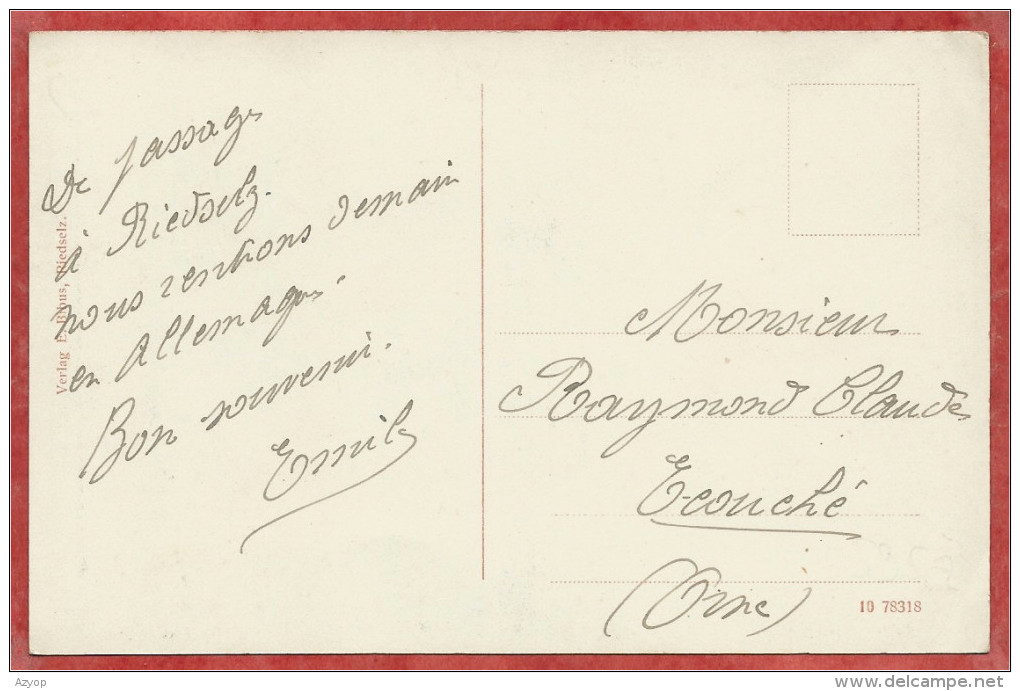 De passage
à Riedselz.
nous rentrons demain
en Allemagne.
Bon souvenir.
Emile
Verlag E. Bibus, Riedselz.
Monsieur
Raymond Claude
Ecouché
(Orne)
10 78318
Azyop
www.delcampe.net